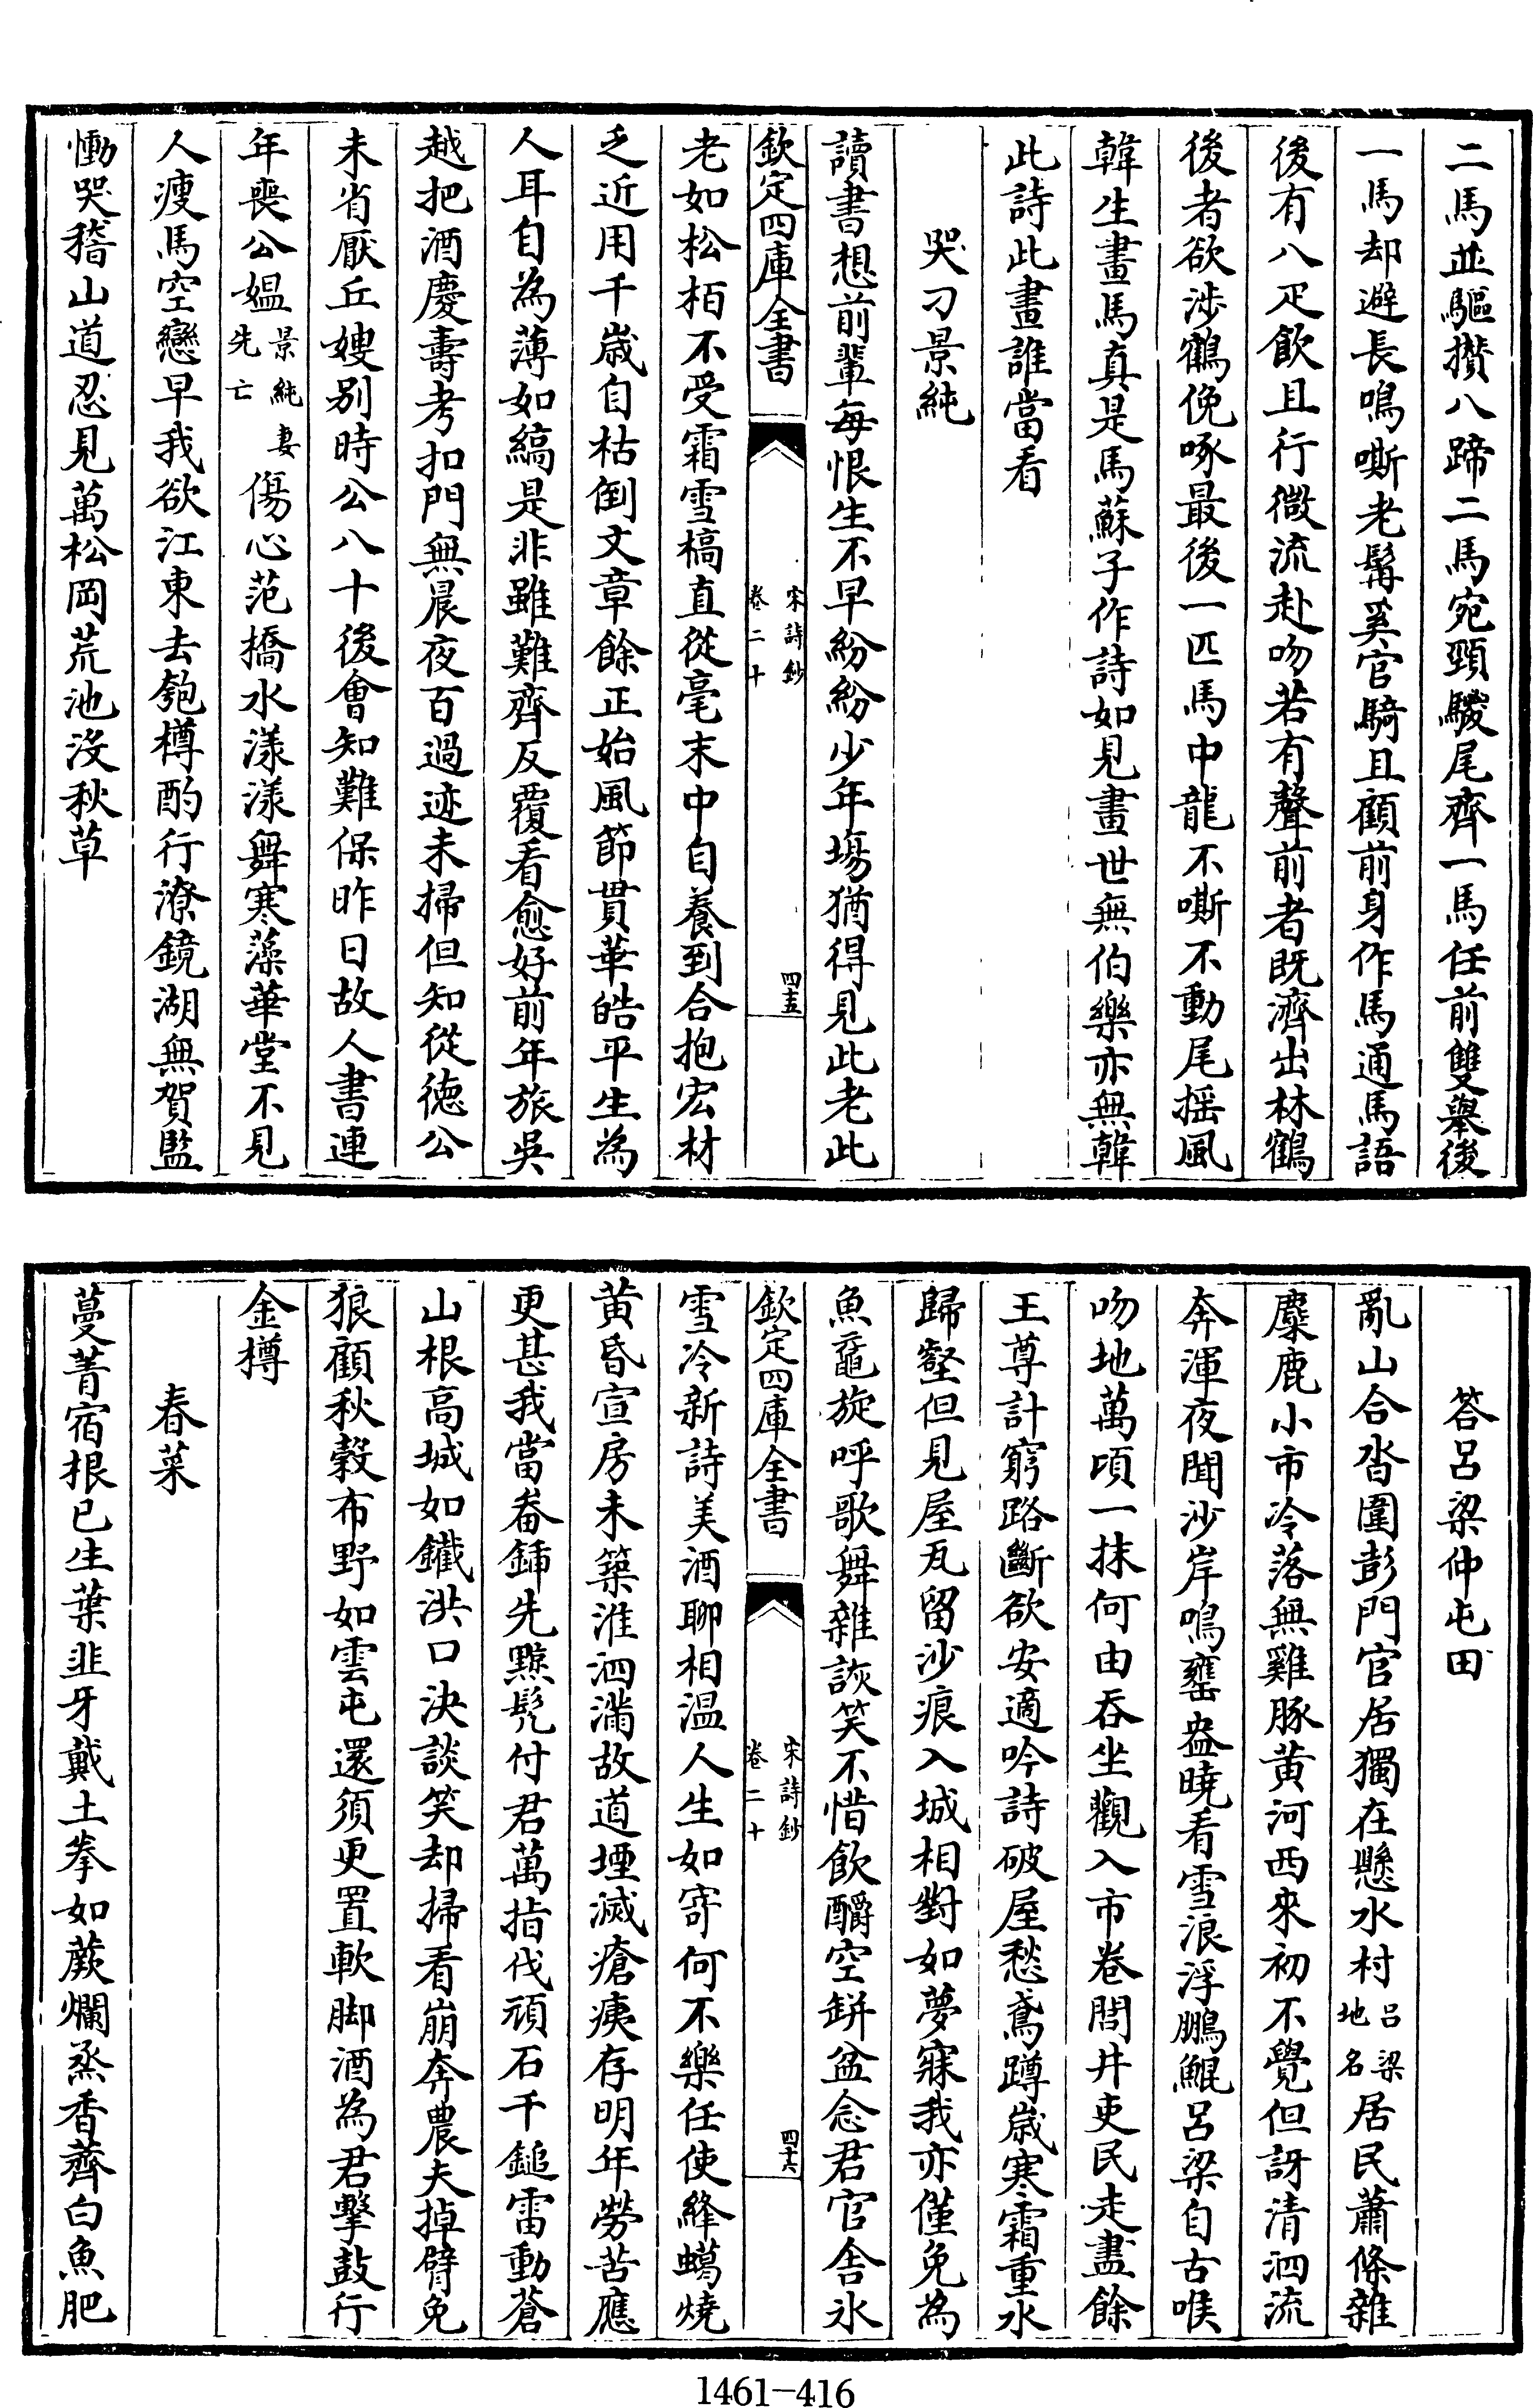 二馬並驅攢八蹄二馬宛頸騣尾齊一馬任前雙舉後
一馬却避長鳴嘶老髯奚官騎且顧前身作馬通馬語
後有八疋飲且行微流赴吻若有聲前者既濟出林鶴
後者欲涉鶴俛啄最後一匹馬中龍不嘶不動尾搖風
韓生畫馬真是馬蘇子作詩如見畫世無伯樂亦無韓
此詩此畫誰當看
哭刁景純
讀書想前輩每恨生不早紛紛少年塲猶得見此老此
欽定四庫全書
宋詩鈔
卷二十
四五
老如松栢不受霜雪槁直從毫末中自養到合抱宏材
乏近用千歲自枯倒文章餘正始風節貫華皓平生為
人耳自為薄如縞是非雖難齊反覆看愈好前年旅吳
越把酒慶壽考扣門無晨夜百過迹未掃但知從徳公
未省厭丘嫂别時公八十後會知難保昨日故人書連
年喪公媼景純妻先亡傷心范橋水漾漾舞寒藻華堂不見
人瘦馬空戀早我欲江東去匏樽酌行潦鏡湖無賀監
慟哭稽山道忍見萬松岡荒池沒秋草
答呂梁仲屯田
亂山合沓圍彭門官居獨在懸水村呂梁地名居民蕭條雜
麋鹿小市冷落無雞豚黄河西來初不覺但訝清泗流
奔渾夜聞沙岸鳴甕盎曉看雪浪浮鵬鯤呂梁自古喉
吻地萬頃一抹何由吞坐觀入市卷閭井吏民走盡餘
王尊計窮路斷欲安適吟詩破屋愁鳶蹲歲寒霜重水
歸壑但見屋瓦留沙痕入城相對如夢寐我亦僅免為
魚黿旋呼歌舞雜詼笑不惜飲釂空缾盆念君官舍氷
欽定四庫全書
宋詩鈔
卷二十
四十六
雪冷新詩美酒聊相温人生如寄何不樂任使絳蠟燒
黄昏宣房未築淮泗滿故道堙滅瘡痍存明年勞苦應
更甚我當畚鍤先黥髠付君萬指伐頑石千鎚雷動蒼
山根高城如鐵洪口決談笑却掃看崩奔農夫掉臂免
狼顧秋穀布野如雲屯還須更置軟脚酒為君擊鼓行
金樽
春菜
蔓菁宿根已生葉韭牙戴土拳如蕨爛烝香薺白魚肥
1461-416